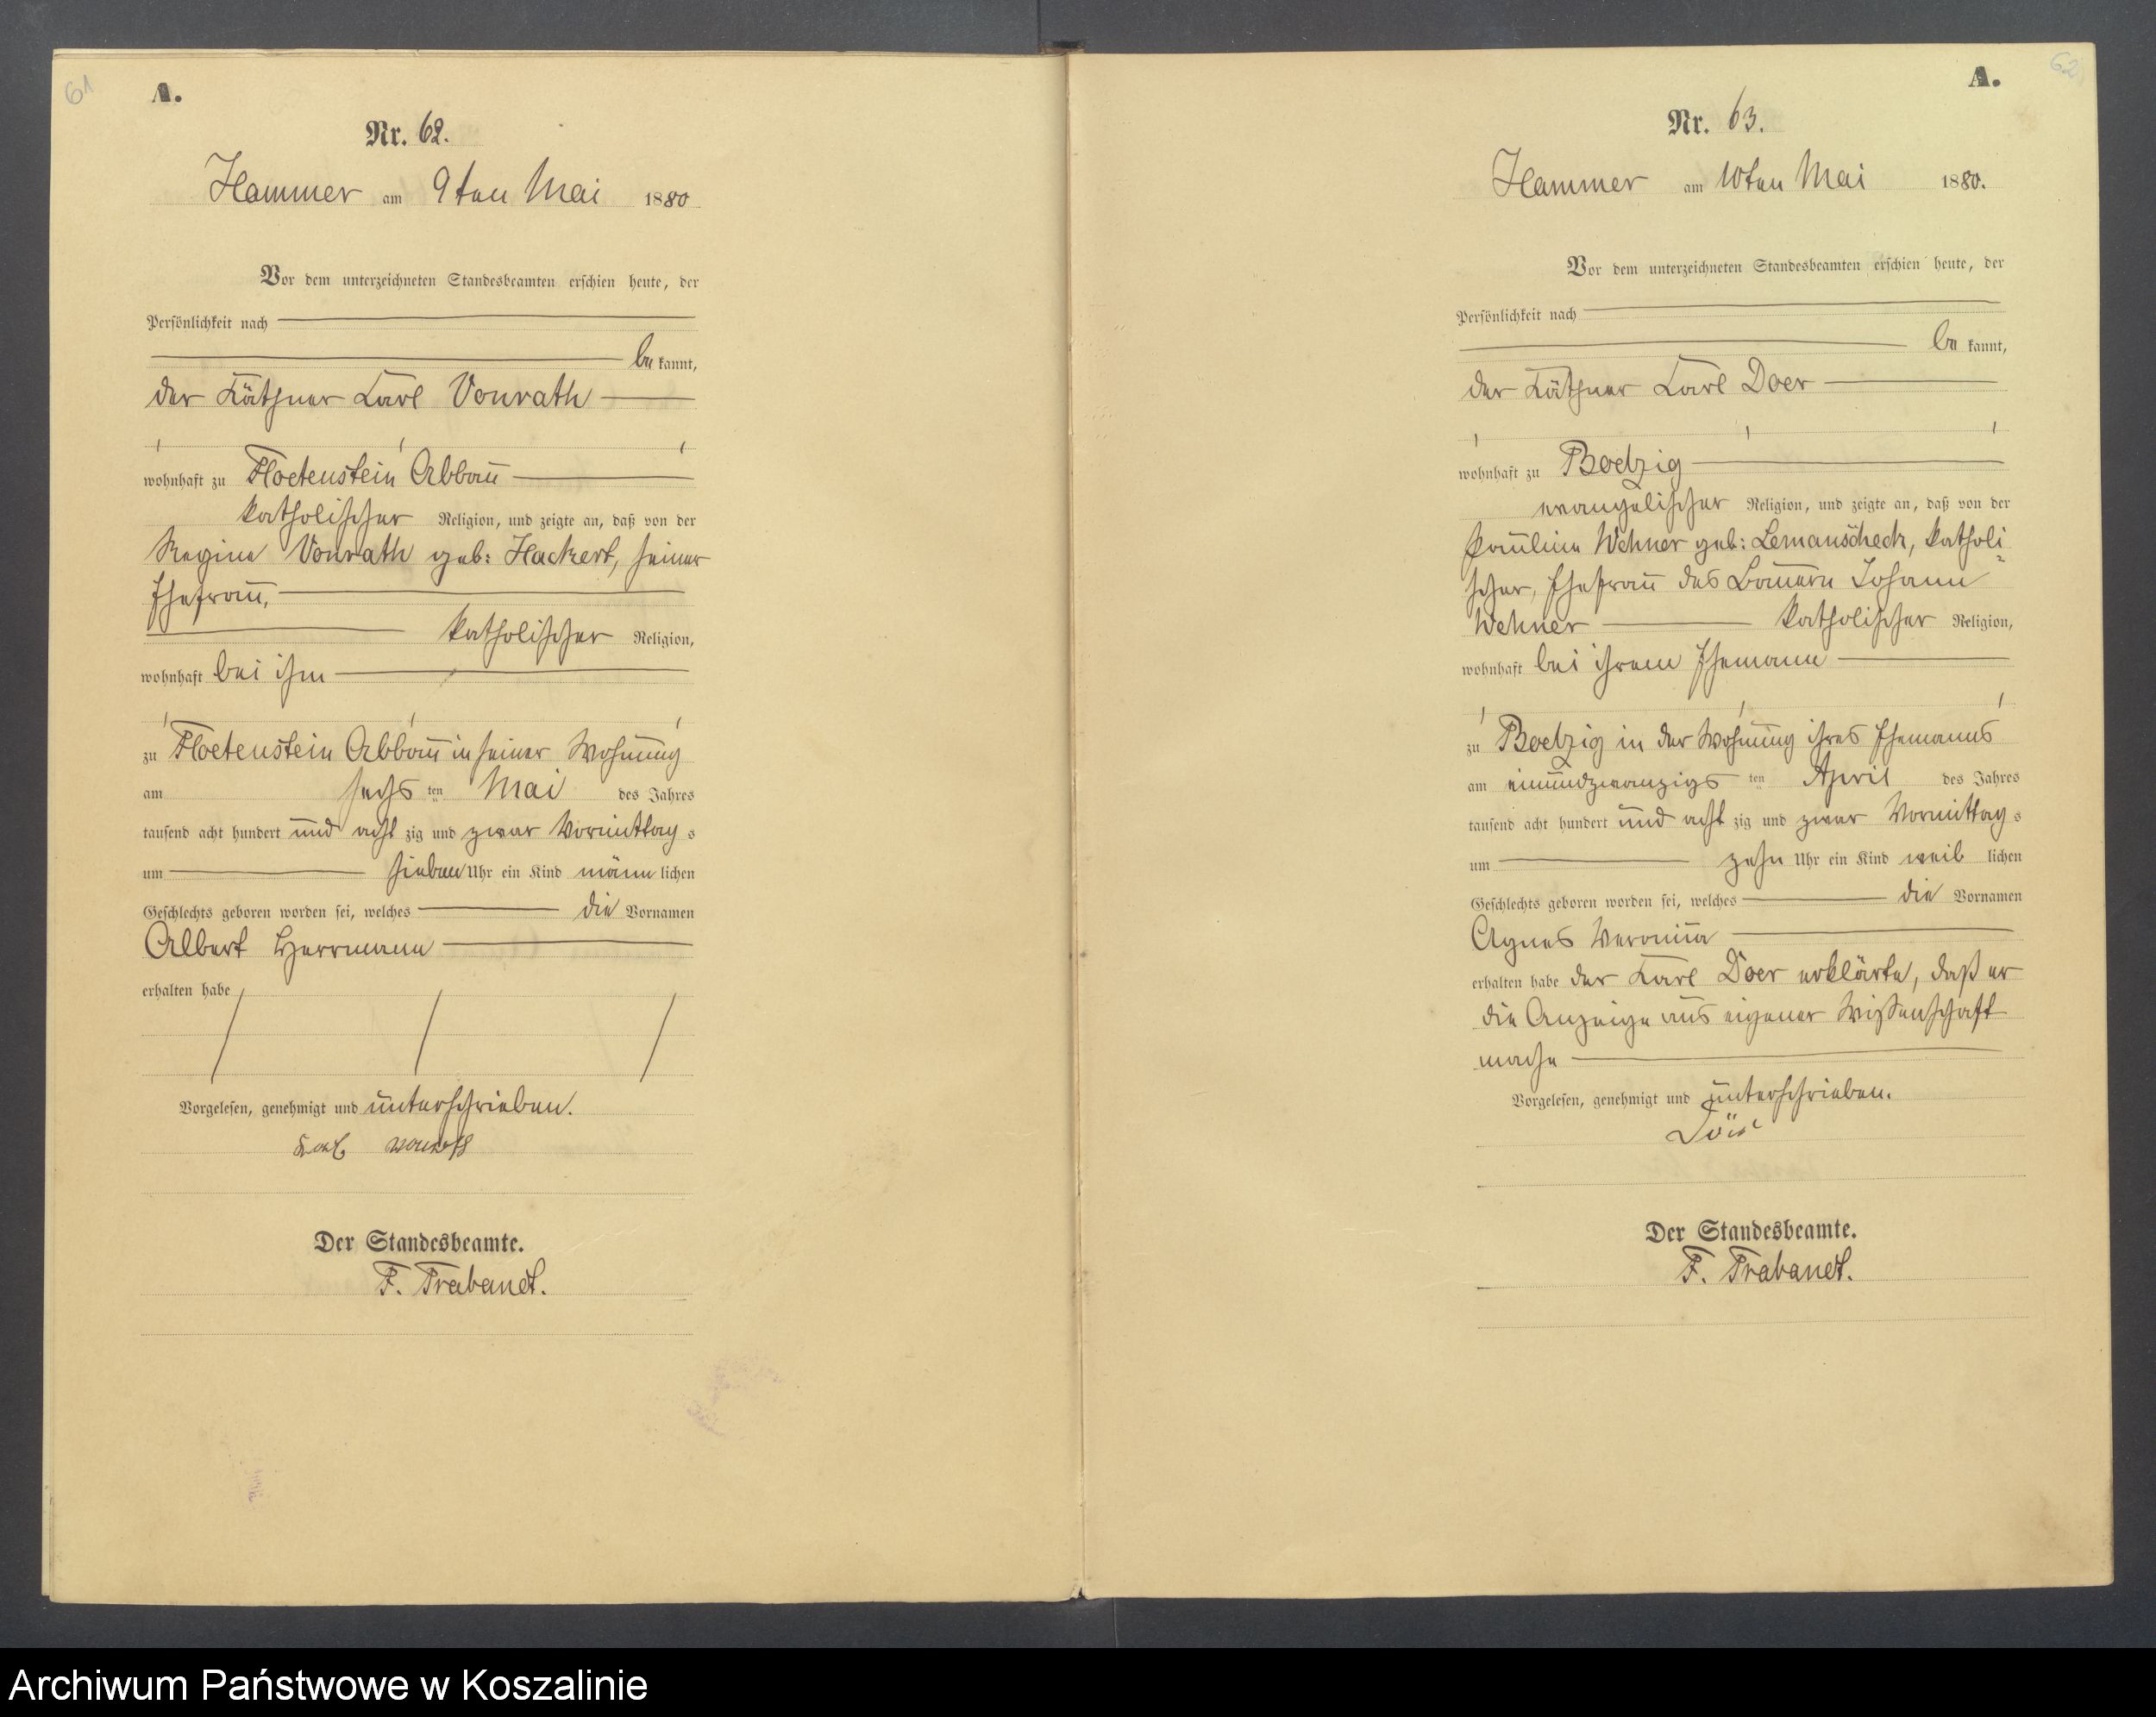 61
A.
Nr. 62.
Hammer am 9ten Mai 1880
Vor dem unterzeichneten Standesbeamten erschien heute, der
Persönlichkeit nach
bekannt,
der Käthner Karl Vonrath
wohnhaft zu Floetenstein Abbau
katholischer Religion, und zeigte an, daß von der
Regine Vonrath geb: Hackert, seiner
Ehefrau,
katholischer Religion,
wohnhaft bei ihm
zu Floetenstein Abbau in seiner Wohnung
am sechs ten Mai des Jahres
tausend acht hundert und acht zig und zwar Vormittag s
um sieben Uhr ein Kind männ lichen
Geschlechts geboren worden sei, welches die Vornamen
Albert Herrmann
erhalten habe
Vorgelesen, genehmigt und unterschrieben.
Karl
Der Standesbeamte.
F. Trabandt.
62
A.
Nr. 63.
Hammer am 10ten Mai 1880.
Vor dem unterzeichneten Standesbeamten erschien heute, der
Persönlichkeit nach
bekannt,
der Käthner Karl Doer
wohnhaft zu Boelzig
evangelischer Religion, und zeigte an, daß von der
Pauline Wehner geb: Lemanscheck, katholi-
scher, Ehefrau des Bauern Johann
Wehner katholischer Religion,
wohnhaft bei ihrem Ehemann
zu Boelzig in der Wohnung ihres Ehemanns
am einundzwanzigs ten April des Jahres
tausend acht hundert und acht zig und zwar Vormittag s
um zehn Uhr ein Kind weib lichen
Geschlechts geboren worden sei, welches die Vornamen
Agnes
erhalten habe der Karl Doer erklärte, daß er
die Anzeige aus eigener Wissenschaft
mache
Vorgelesen, genehmigt und unterschrieben.
Der Standesbeamte.
F. Trabandt.
Archiwum Państwowe w Koszalinie